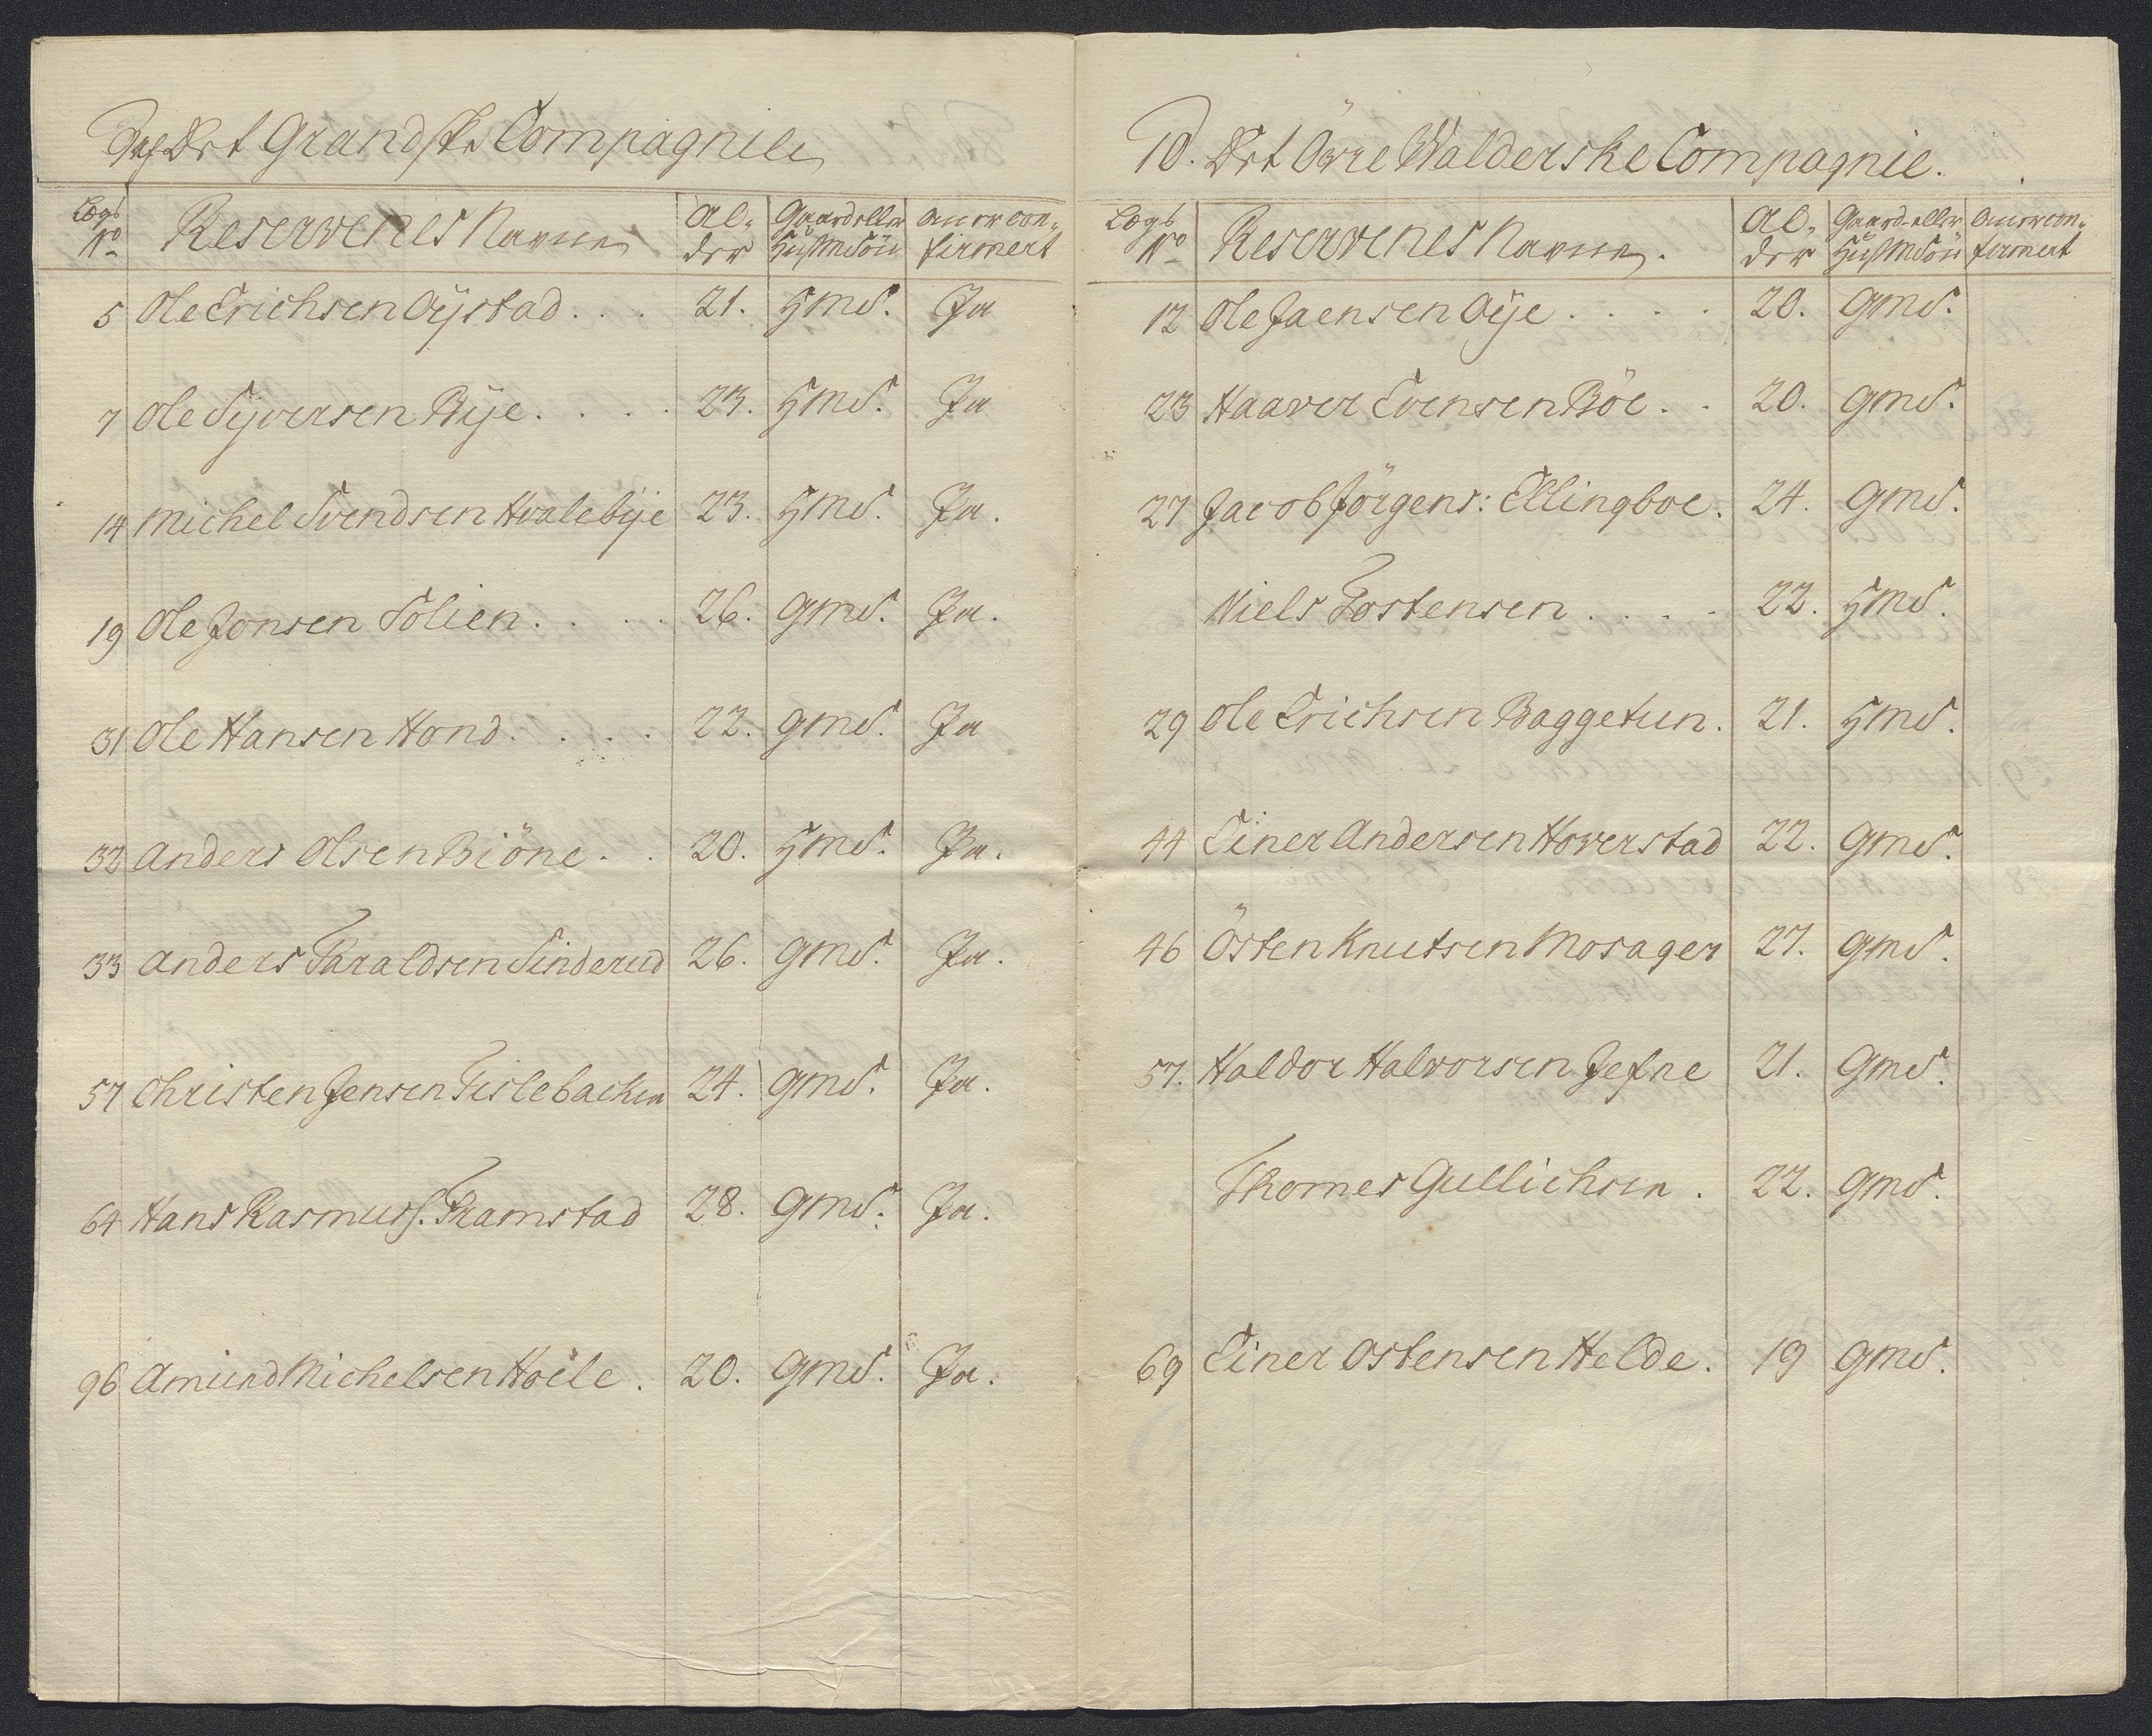 Det Grandske Compagnie
Lægs No Reservenes Navne Al-der Gaard eller Huusm Sön An er con-firmert
5 Ole Erichsen Öystad . . . 21. HmS. Ja
7 Ole Syversen Bÿe . . . . 23. HmS. Ja
14 Michel Svendsen Hvalebÿe 23. HmS. Ja.
19 Ole Jonsen Solien . . . . 26. GmS. Ja.
31 Ole Hansen Hond . . . . 22. GmS. Ja
32 Anders Olsen Biöne . . 20. HmS. Ja.
33 Anders Taraldsen Sinderud 26. GmS. Ja.
57 Christen Jensen Fislebachen 24. GmS. Ja.
64 Hans Rasmuss. Framstad 28. GmS. Ja.
96 Amund Michelsen Höile . 20. GmS. Ja.
10. Det Övre Walderske Compagnie.
Lægs No Reservenes Navne. Al-der Gaard-eller Huusm Sön An er con-firmert
12 Ole Jaensen Öÿe . . . . 20. GmS.
23 Haaver Evensen Böe . . 20. GmS.
27 Jacob Jörgens: Ellingboe . 24. GmS.
Niels Tostensen . . . . 22. HmS.
29 Ole Erichsen Baggetun . 21. HmS.
44 Einer Andersen Hoverstad 22. GmS.
46 Östen Knutsen Mosager 27. GmS.
57. Haldor Halvorsen Jefne 21. GmS.
Thomes Gullichsen . 22. GmS.
69 Einer Ostensen Helde . 19 GmS.